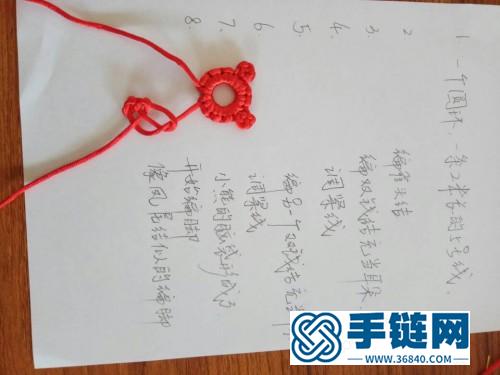 1 一个圆环、一条2米长的5号线.
2 编雀头结
3. 编双钱结充当耳朵.
4. 调紧线
5. 编另一个双钱结充当
6. 调紧线
7. 小熊的脑袋形成了
8. 开始编脚
像凤尾结似的编脚
手链网
WWW.36840.COM